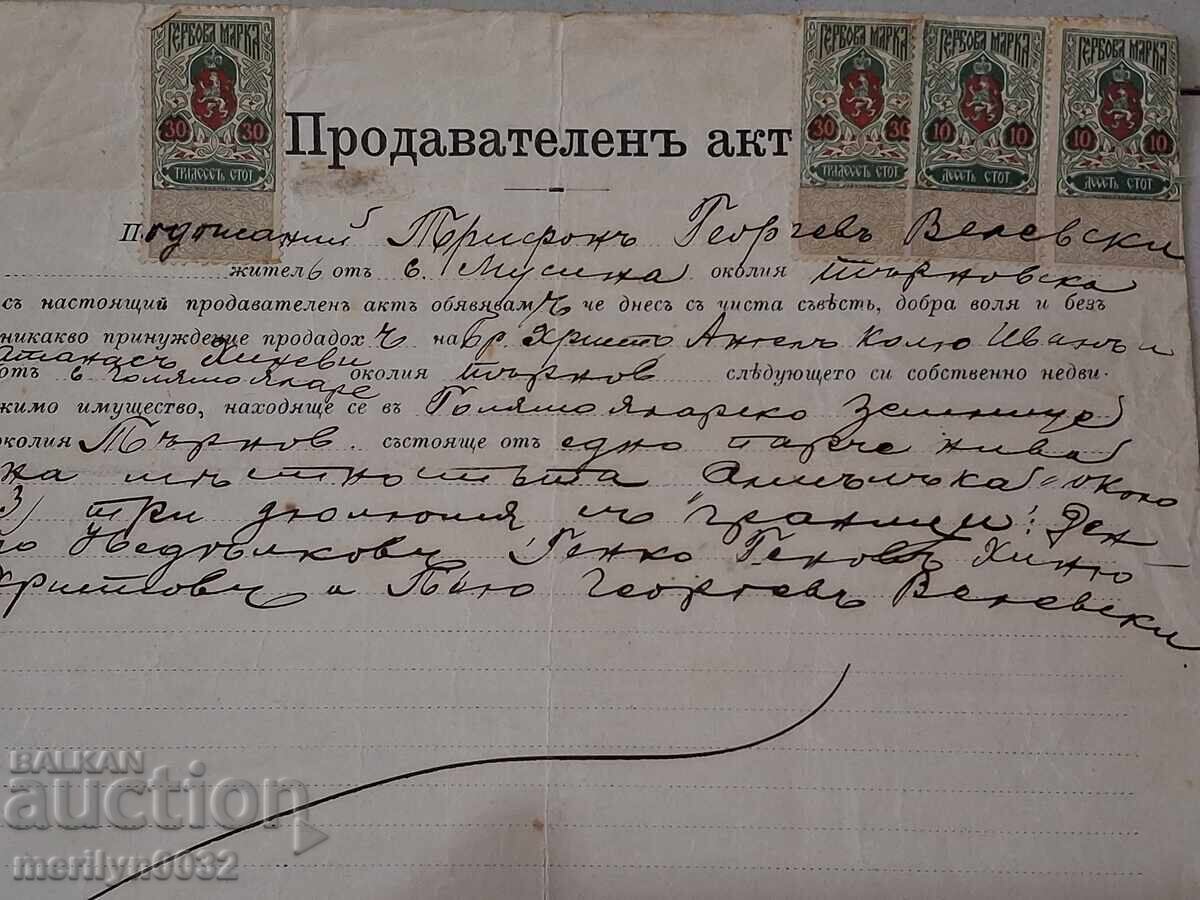 ГЕРБОВА МАРКА ГЕРБОВА МАРКА ГЕРБОВА МАРКА ГЕРБОВА МАРКА
30 30 30 30 10 10 10 10
ТРИДЕСЕТЬ СТОТ ТРИДЕСЕТЬ СТОТ ДЕСЕТЬ СТОТ ДЕСЕТЬ СТОТ
Продавателенъ акт
Подписаний Трифонъ Георгевъ Велевски
жителъ отъ с. Мусина околия Търновска
съ настоящий продавателен актъ обявявамъ че днесъ съ чиста съвѣсть, добра воля и безъ
никакво принуждение продадохъ на Бр. Христо Ангелъ Колю Иванъ и
Атанасъ Хиневи
отъ с Голямо Яларе околия Търнов следующето си собственно недви-
жимо имущество, находяще се въ Голямояларско землище
околия Търнов. състояще отъ едно парче нива
на мѣстностьта около
3 три дюлюма съ граници: Ден
ю Недѣлковъ Генко Геновъ Хиню
Христовъ и Пѣю Георгевъ Велевски
BALKAN
auction
merilyn0032